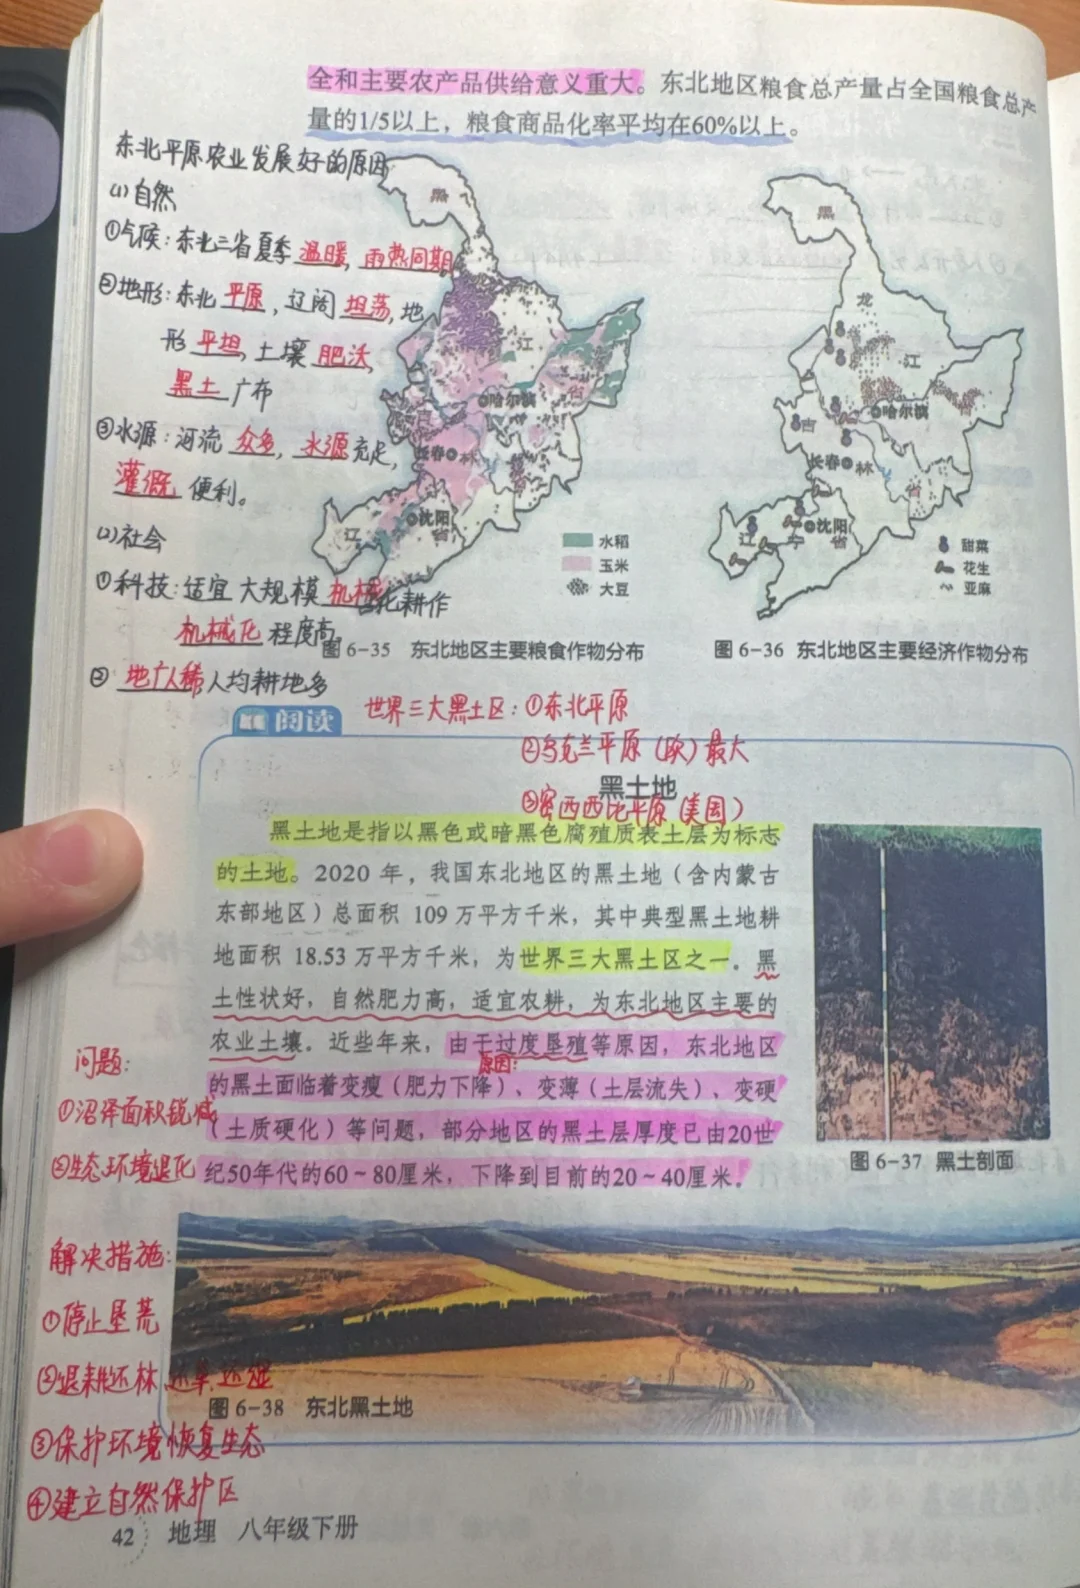 全和主要农产品供给意义重大。东北地区粮食总产量占全国粮食总产
量的1/5以上，粮食商品化率平均在60%以上。
东北平原农业发展好的原因
(1)自然
①气候：东北三省夏季温暖，雨热同期
②地形：东北平原，辽阔坦荡，地
形平坦，土壤肥沃，
黑土广布
③水源：河流众多，水源充足，
灌溉便利。
(2)社会
①科技：适宜大规模机械化耕作
机械化程度高。
②地广人稀人均耕地多
黑
江
省
哈尔滨
吉
长春
林
沈阳
辽
省
水稻
玉米
大豆
图6-35 东北地区主要粮食作物分布
黑
龙
江
省
哈尔滨
吉
长春
林
省
沈阳
辽
宁
省
甜菜
花生
亚麻
图6-36 东北地区主要经济作物分布
阅读
世界三大黑土区：①东北平原
②乌克兰平原（欧）最大
③密西西比平原（美国）
黑土地
黑土地是指以黑色或暗黑色腐殖质表土层为标志
的土地。2020 年，我国东北地区的黑土地（含内蒙古
东部地区）总面积 109 万平方千米，其中典型黑土地耕
地面积 18.53 万平方千米，为世界三大黑土区之一。黑
土性状好，自然肥力高，适宜农耕，为东北地区主要的
农业土壤。近些年来，由于过度垦殖等原因，东北地区
原因：
的黑土面临着变瘦（肥力下降）、变薄（土层流失）、变硬
（土质硬化）等问题，部分地区的黑土层厚度已由20世
纪50年代的60～80厘米，下降到目前的20～40厘米。
图6-37 黑土剖面
问题：
①沼泽面积锐减
②生态环境退化
解决措施：
①停止垦荒
②退耕还林 还草 还湿
③保护环境恢复生态
④建立自然保护区
图6-38 东北黑土地
42 地理 八年级下册